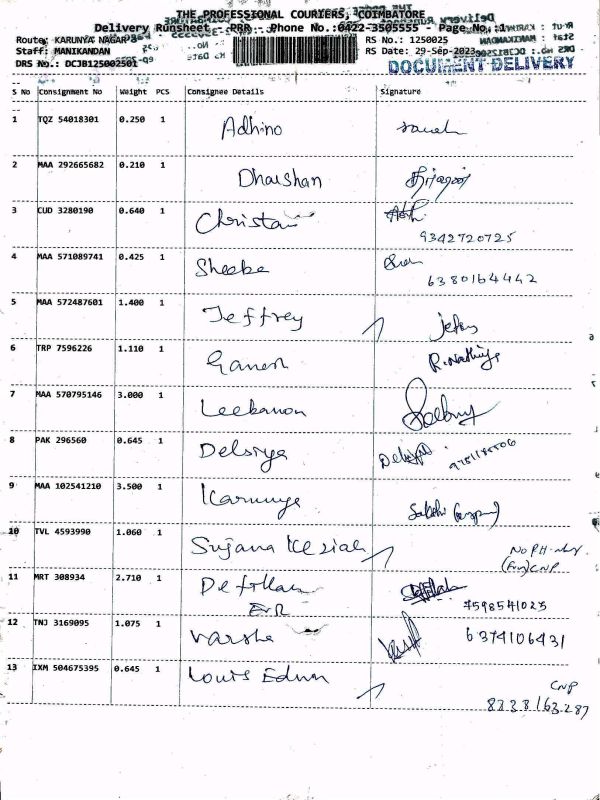 THE PROFESSIONAL COURIERS, COIMBATORE
Delivery Runsheet - PRR - Phone No.:0422-3505555 - Page No.:1
Route: KARUNYA NAGAR
RS No.: 1250025
Staff: MANIKANDAN
RS Date: 29-Sep-2023
DRS No.: DCJB125002501
DOCUMENT DELIVERY
S No Consignment No Weight PCS Consignee Details Signature
1 TQZ 54018301 0.250 1 Adhino
2 MAA 292665682 0.210 1 Dharshan
3 CUD 3280190 0.640 1 Christai
9342720725
4 MAA 571089741 0.425 1 Sheeba
6380164442
5 MAA 572487601 1.400 1 Jeffrey
6 TRP 7596226 1.110 1 Ganesh R.
7 MAA 570795146 3.000 1 Leebanon
8 PAK 296560 0.645 1 Delsiya
9 MAA 102541210 3.500 1 Karunya Sakthi
10 TVL 4593990 1.060 1 Sujana Keziah
No PH.
CNP
11 MRT 308934 2.710 1
7598541025
12 TNJ 3169095 1.075 1 Varsha 6374106431
13 IXM 504675395 0.645 1 Louis Edwin
CNP
8838163287